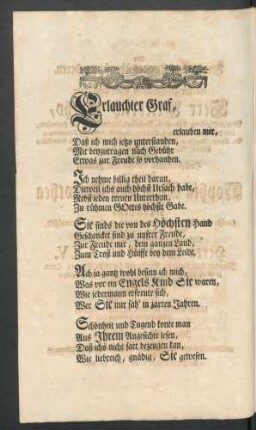 Erlauchter Graf,
erlauben mir,
Daß ich mich jetzo unterstanden,
Mit beyzutragen nach Gebühr
Etwas zur Freude so vorhanden.
Ich nehme billig theil daran,
Dieweil ichs auch höchst Ursach habe,
Nebst jeden treuen Unterthan,
Zu rühmen GOttes höchste Gabe.
Sie sinds die von des Höchsten Hand
Geschencket sind zu unsrer Freude,
Zur Freude mir, dem gantzen Land,
Zum Trost und Hülffe vor dem Leide.
Ach ja gantz wohl besinn ich mich,
Was vor ein Engels Kind Sie waren,
Wie jedermann erfreute sich,
Wer Sie nur sah' in zarten Jahren.
Schönheit und Tugend konte man
Aus Ihrem Angesichte lesen,
Daß ichs nicht satt bezeugen kan,
Wie liebreich, gnädig, Sie gewesen.